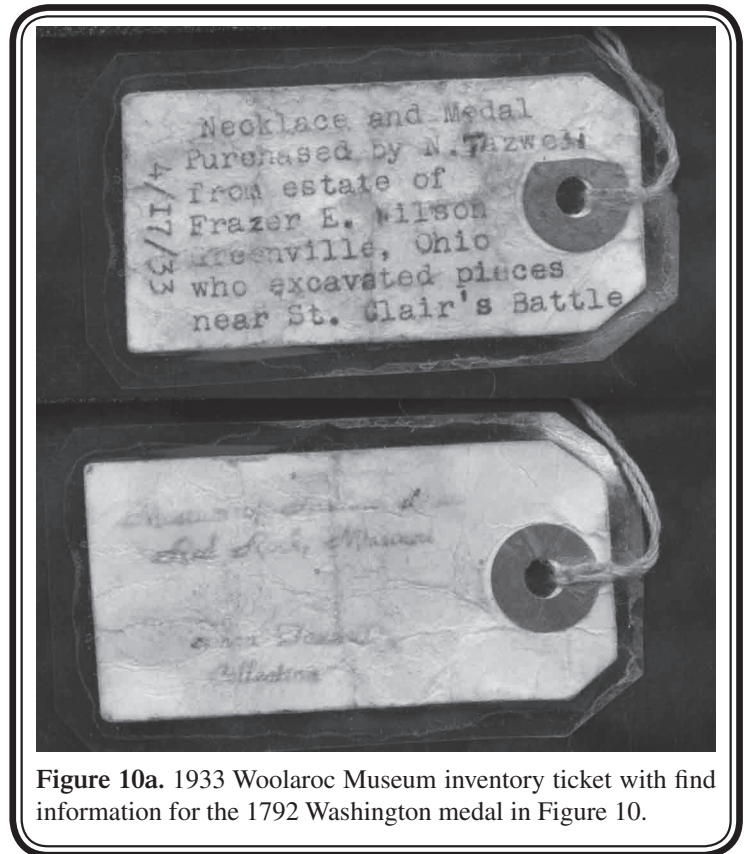 Necklace and Medal
Purchased by N. Tazwell
from estate of
Frazer E. Wilson
Greenville, Ohio
who excavated pieces
near St. Clair's Battle
4/17/33
Museum of
Red Rock, Missouri
Collection
Figure 10a. 1933 Woolaroc Museum inventory ticket with find
information for the 1792 Washington medal in Figure 10.